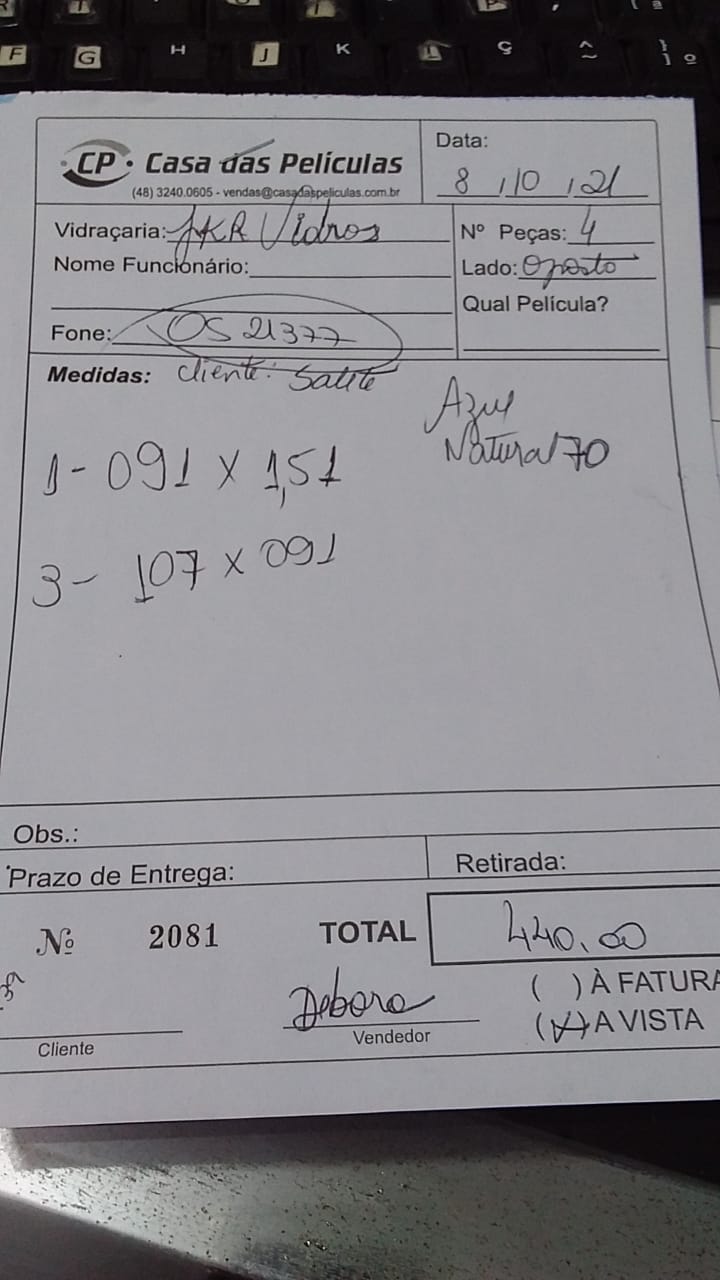 F G H J K L Ç ^ ~ } ] º
CP • Casa das Películas
(48) 3240.0605 - vendas@casadaspeliculas.com.br
Data:
8 / 10 / 21
Vidraçaria: JKR Vidros
Nº Peças: 4
Nome Funcionário:
Lado: Oposto
Qual Película?
Fone: OS 21377
Medidas: Cliente: Salete
Azul
Natural 70
1 - 091 X 1,51
3 - 107 x 091
Obs.:
Prazo de Entrega:
Retirada:
Nº 2081
TOTAL 440,00
( ) À FATURA
(X) A VISTA
Debora
Cliente
Vendedor